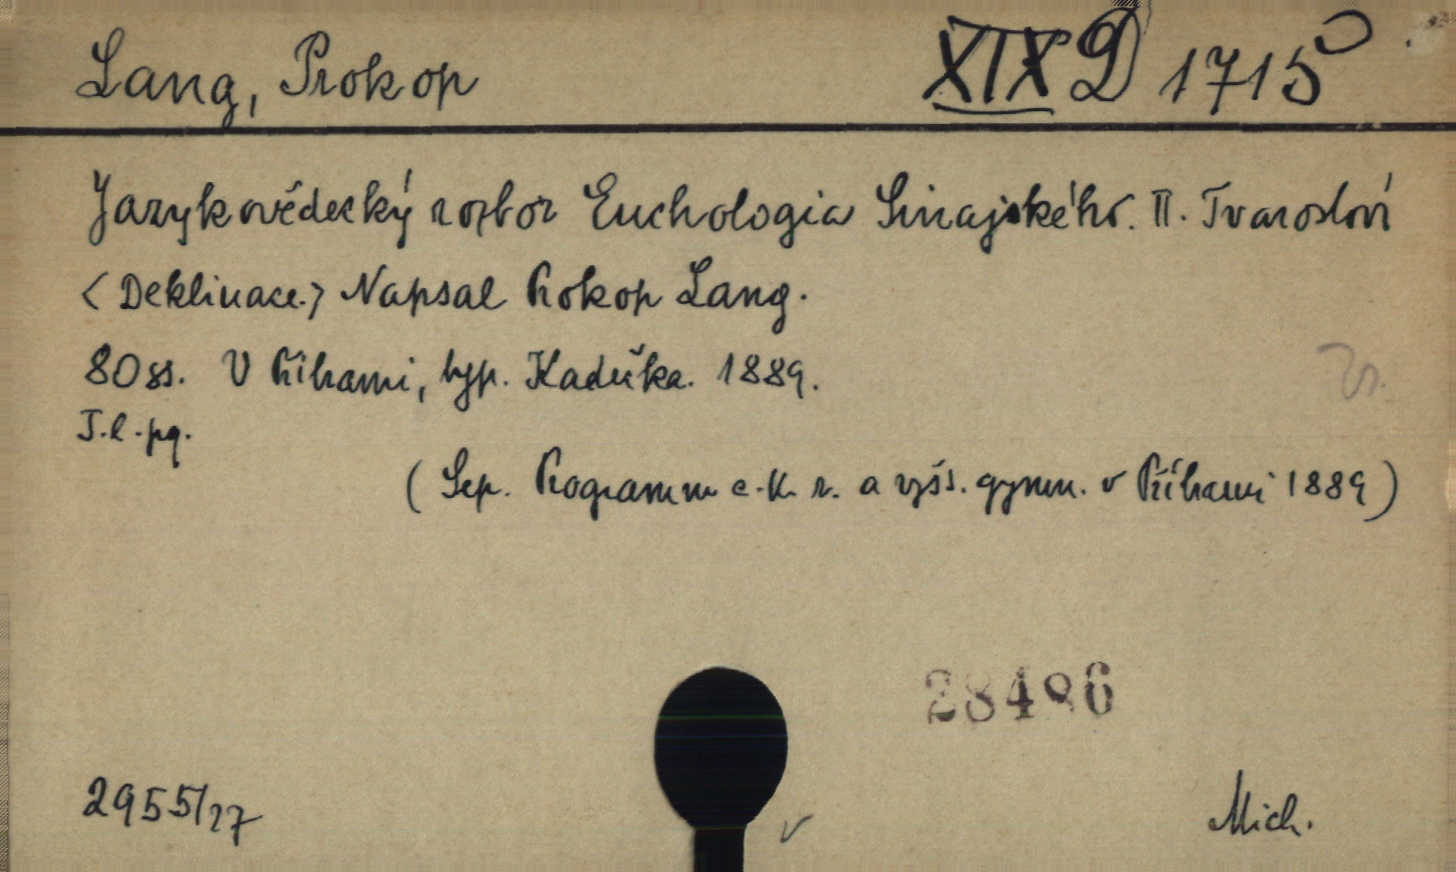 Lang, Prokop XIX D 1715
Jazykovědecký rozbor Euchologia Sinajského. II. Tvarosloví
<Deklinace.> Napsal Prokop Lang.
80 ss. V Příbrami, typ. Kaduška. 1889.
T. l. pg.
(Sep. Programm c. k. r. a vyšš. gymn. v Příbrami 1889)
2955/27
Mich.